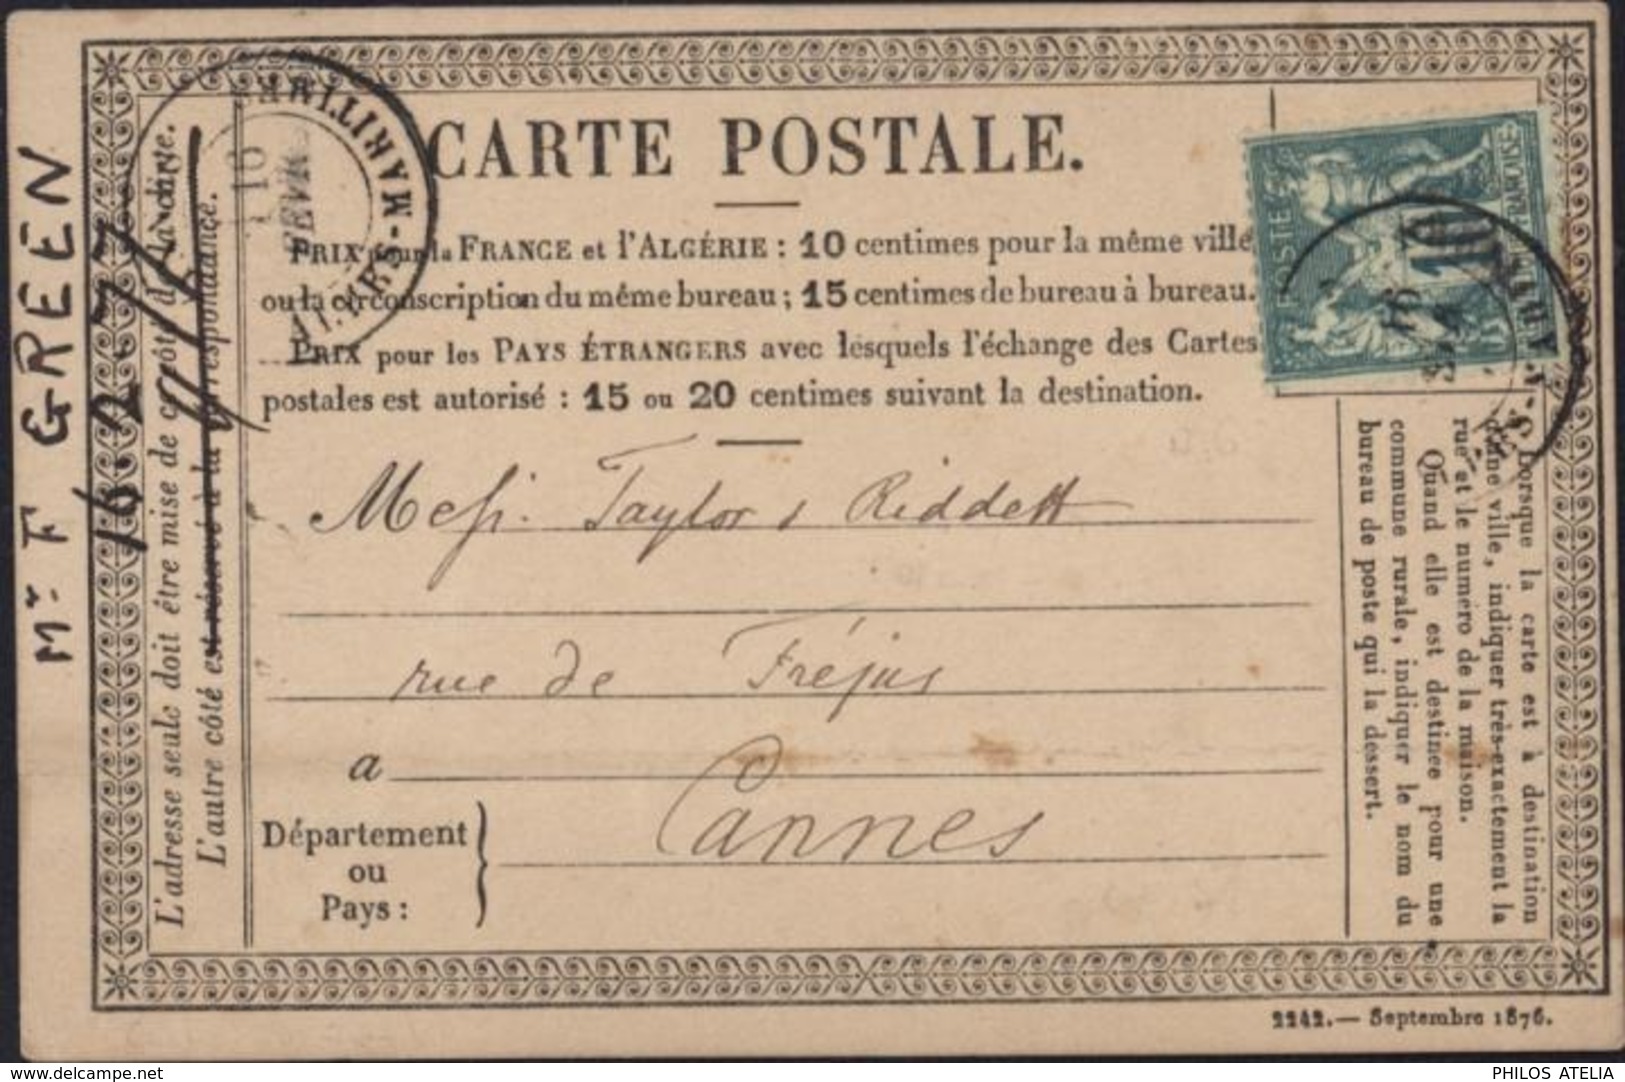 CARTE POSTALE.
PRIX pour la FRANCE et l'ALGÉRIE : 10 centimes pour la même ville
ou la circonscription du même bureau ; 15 centimes de bureau à bureau.
PRIX pour les PAYS ÉTRANGERS avec lesquels l'échange des Cartes
postales est autorisé : 15 ou 20 centimes suivant la destination.
Messrs. Taylor & Riddett
rue de Fréjus
a
Cannes
Département
ou
Pays :
Mr F GREEN
16.2.77
L'adresse seule doit être mise de ce côté de la carte.
L'autre côté est réservé à la correspondance.
Lorsque la carte est à destination
d'une ville, indiquer très-exactement la
rue et le numéro de la maison.
Quand elle est destinée pour une
commune rurale, indiquer le nom du
bureau de poste qui la dessert.
MARITIMES
16
FEVR
POSTE
10
16
2242.— Septembre 1876.
www.delcampe.net
PHILOS ATELIA